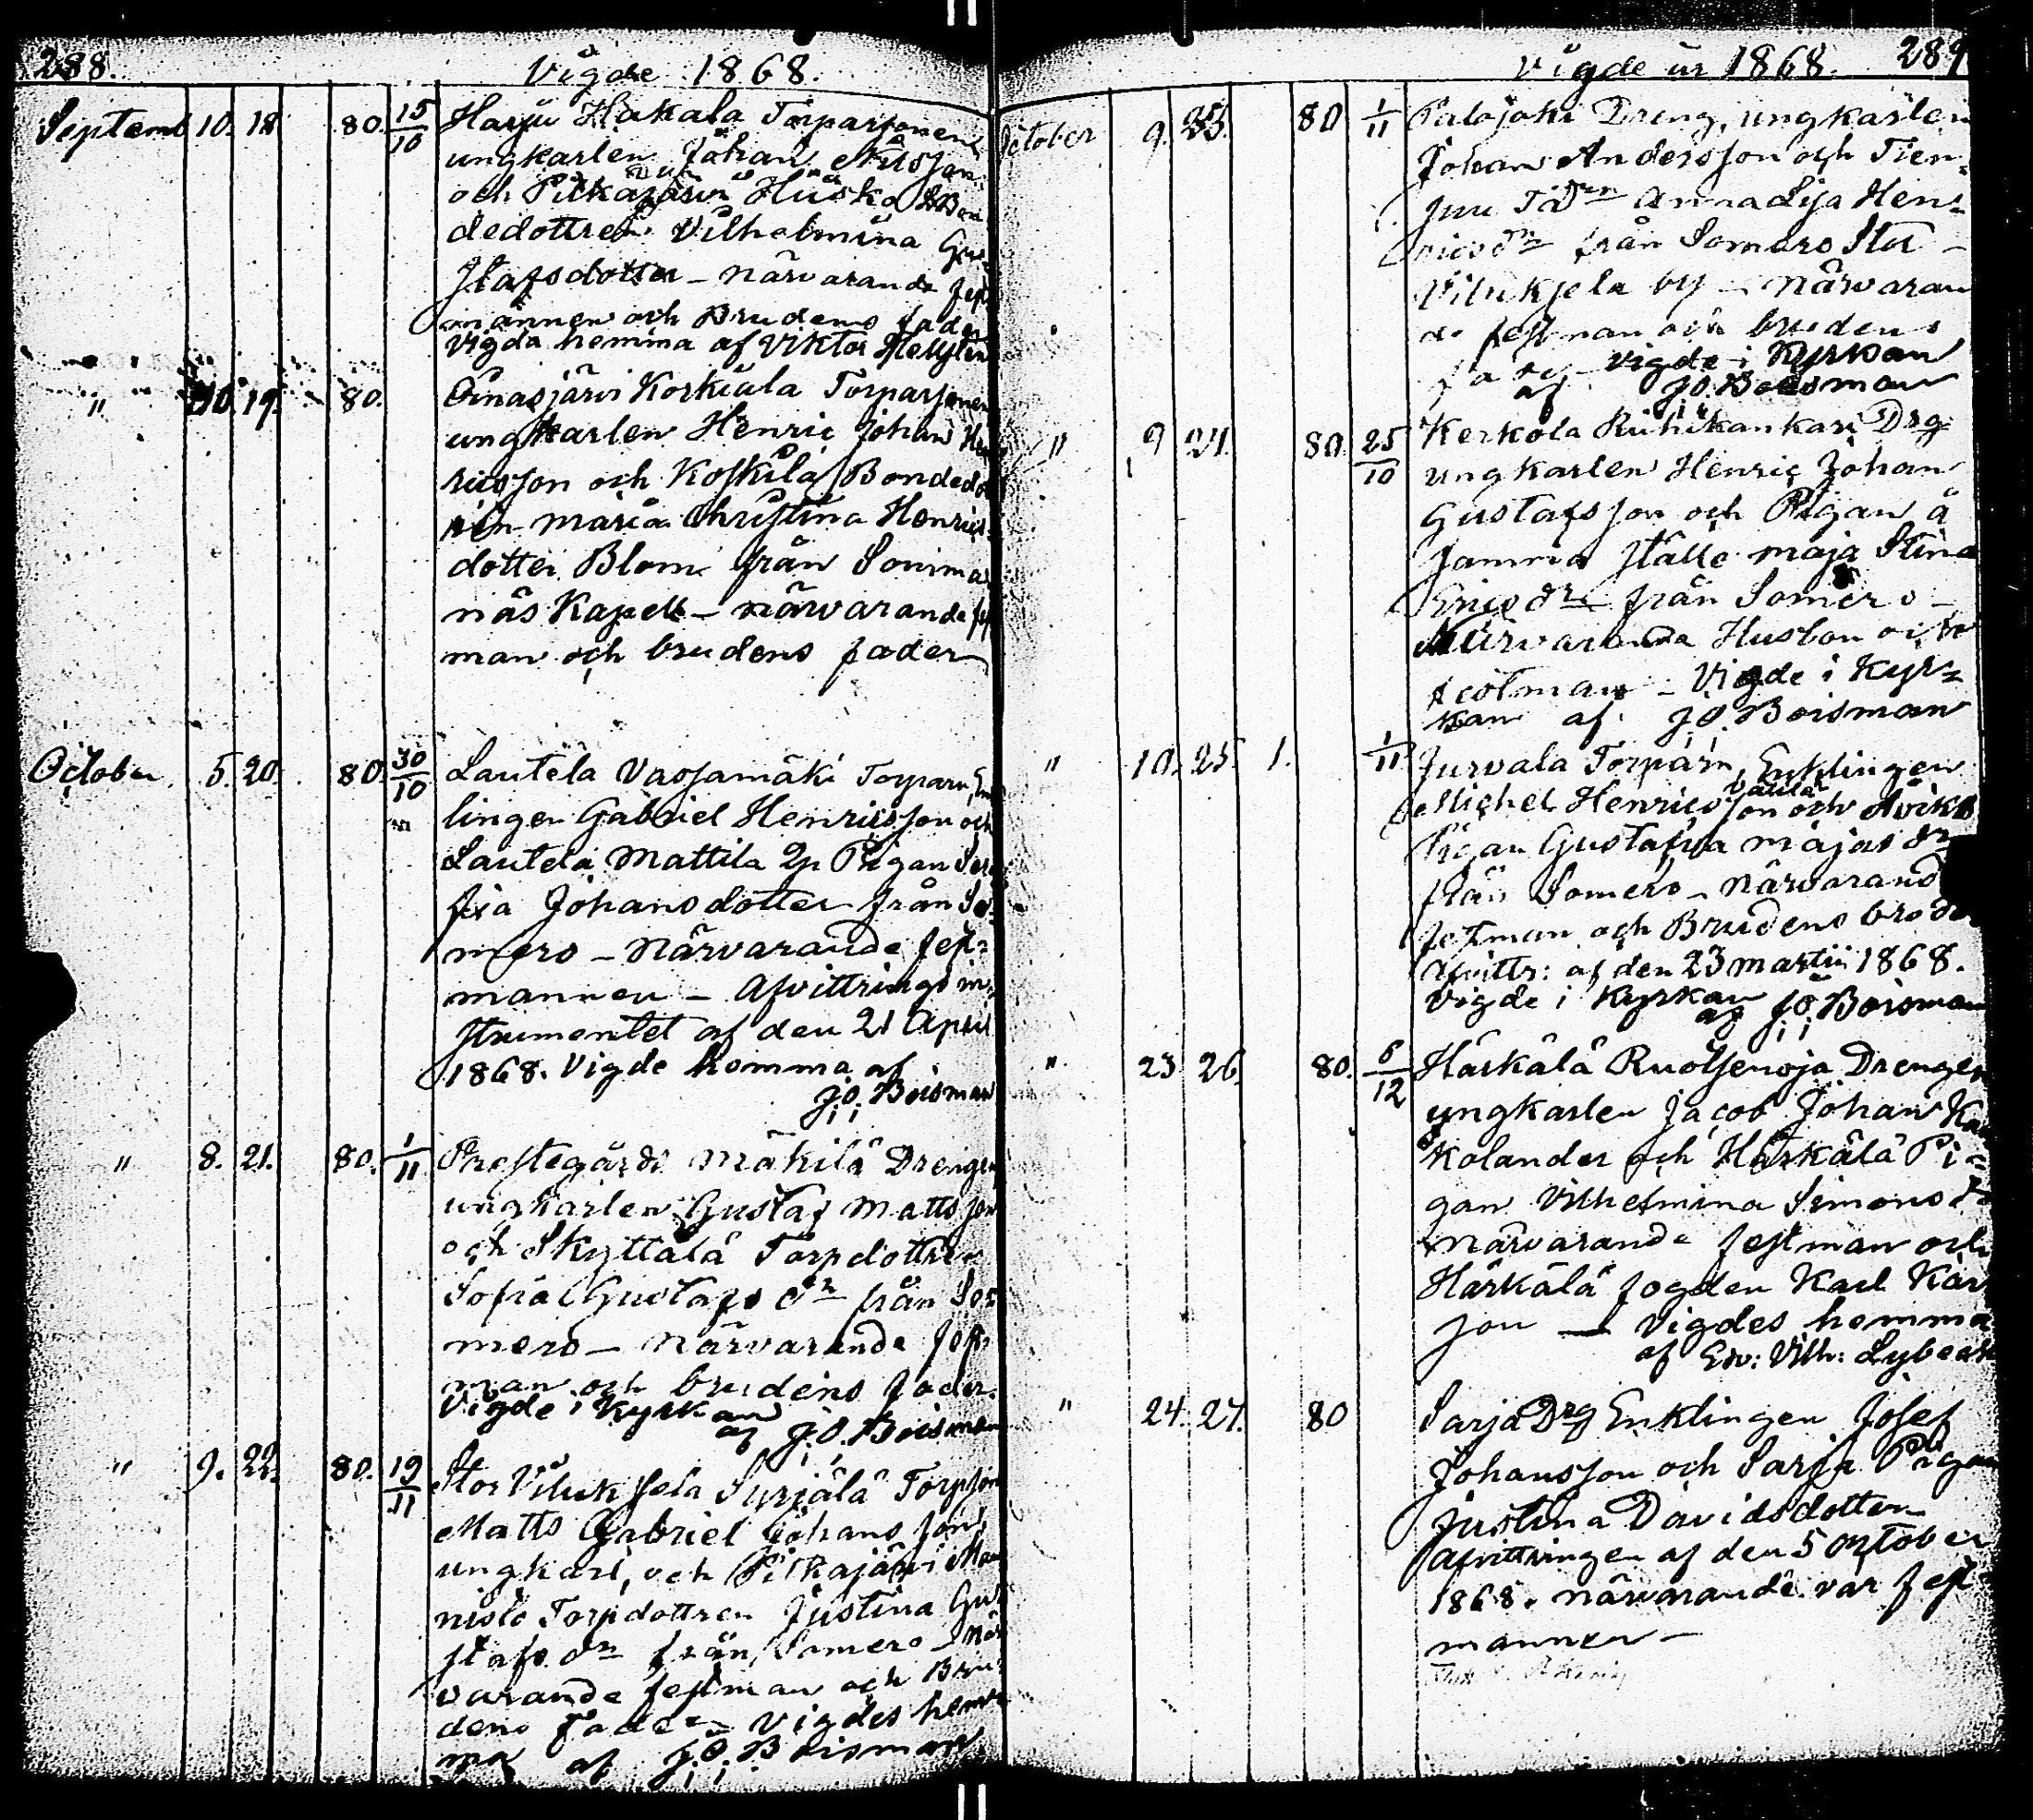 288.
Vigde 1868.
Septemb 10. 18 80. 15/10 Harju Hakala Torparsonen
ungkarlen Johan Nilsson
och Pitkäjärvi Huska Bon
dedottren Vilhelmina Gu
stafsdotter – närvarande fest
männen och Brudens fader
Vigda hemma af Viktor Hellsten
" 10. 19. 80. Oinasjärvi Korkiala Torparsonen
ungkarlen Henric Johan Hen
ricsson och Koskila Bondedot
ren Maria Christina Henrics
dotter Blom från Somma
näs Kapell – närvarande fest
man och brudens fader
October 5. 20. 80. 30/10 Lautela Vassamäki Torparn, En
lingen Gabriel Henricsson och
Lautela Mattila Pigan Sera
fia Johansdotter från So-
mero – Närvarande fest=
mannen – Afvittrings in
strumentet af den 21 April
1868. Vigde hemma af
J.O. Boisman
" 8. 21. 80. 1/11 Prestegårds Mäkilä Drengen
ungkarlen Gustaf Mattsson
och Skyttälä Torpdottren
Sofia Gustafs dr från So=
mero – Närvarande fest-
man och brudens fader.
Vigde i Kyrkan
af J.O. Boisman
" 9. 22. 80. 19/11 Stor Viluksela Syrjälä Torpson
Matts Gabriel Johansson
ungkarl, och Pitkäjärvi Man
nisto Torpdottren Justina Gu
stafs dr från Somero – När
varande festman och Bru-
dens fader – Vigdes hem
ma af J.O. Boisman
Vigde år 1868. 289
October 9. 23. 80 1/11 Palojoki Dreng, ungkarlen
Johan Andersson och Tien-
Anna Lisa Hen=
rics dr från Somero Stor –
Viluksela by – närvaran
de festman och brudens
fader – Vigde i Kyrkan
af J.O. Boisman
" 9 24. 80. 25/10 Kerkola Riihikankari Drg
ungkarlen Henric Johan
Gustafsson och Pigan å
samma ställe Maja Stina
Erics dr från Somero –
Närvarande Husbon och
festman – Vigde i Kyr=
kan af J.O. Boisman
" 10. 25. 1. 1/11 Jurvala Torparn, Enklingen
Michel Henricsson och
Pigan Gustafva Majas dr
från Somero – närvarand
festman och Brudens broder
Afvittr: af den 23 Martii 1868.
Vigde i Kyrkan
af J.O. Boisman
" 23 26. 80. 6/12 Härkälä Ruotsenoja Drengen
ungkarlen Jacob Johan Ka
kolander och Härkälä Pi=
gan Vilhelmina Simons dr
närvarande festman och
Härkälä fogden Karl Kar
son – Vigdes hemma
af Edv: Vilh: Lybeck
" 24. 27. 80 Sarja Drg Enklingen Josef
Johansson och Sarja Pigan
Justina Davidsdotter
Afvittringen af den 5 October
1868. närvarande var fest=
mannen –